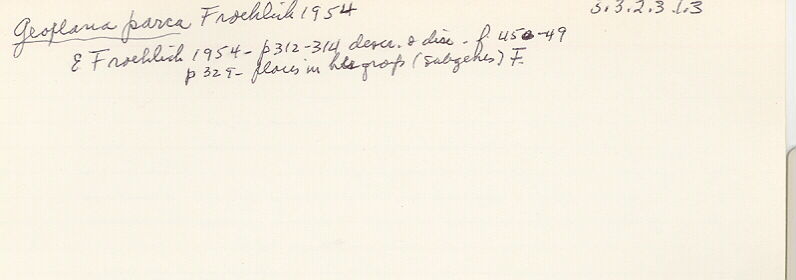 Geoplana parca Froehlich 1954 3.3.2.3.1.3
E Froehlich 1954 - p312-314 descr. & disc. - f 45-49
p 329 - places in his group (subgenus) F.